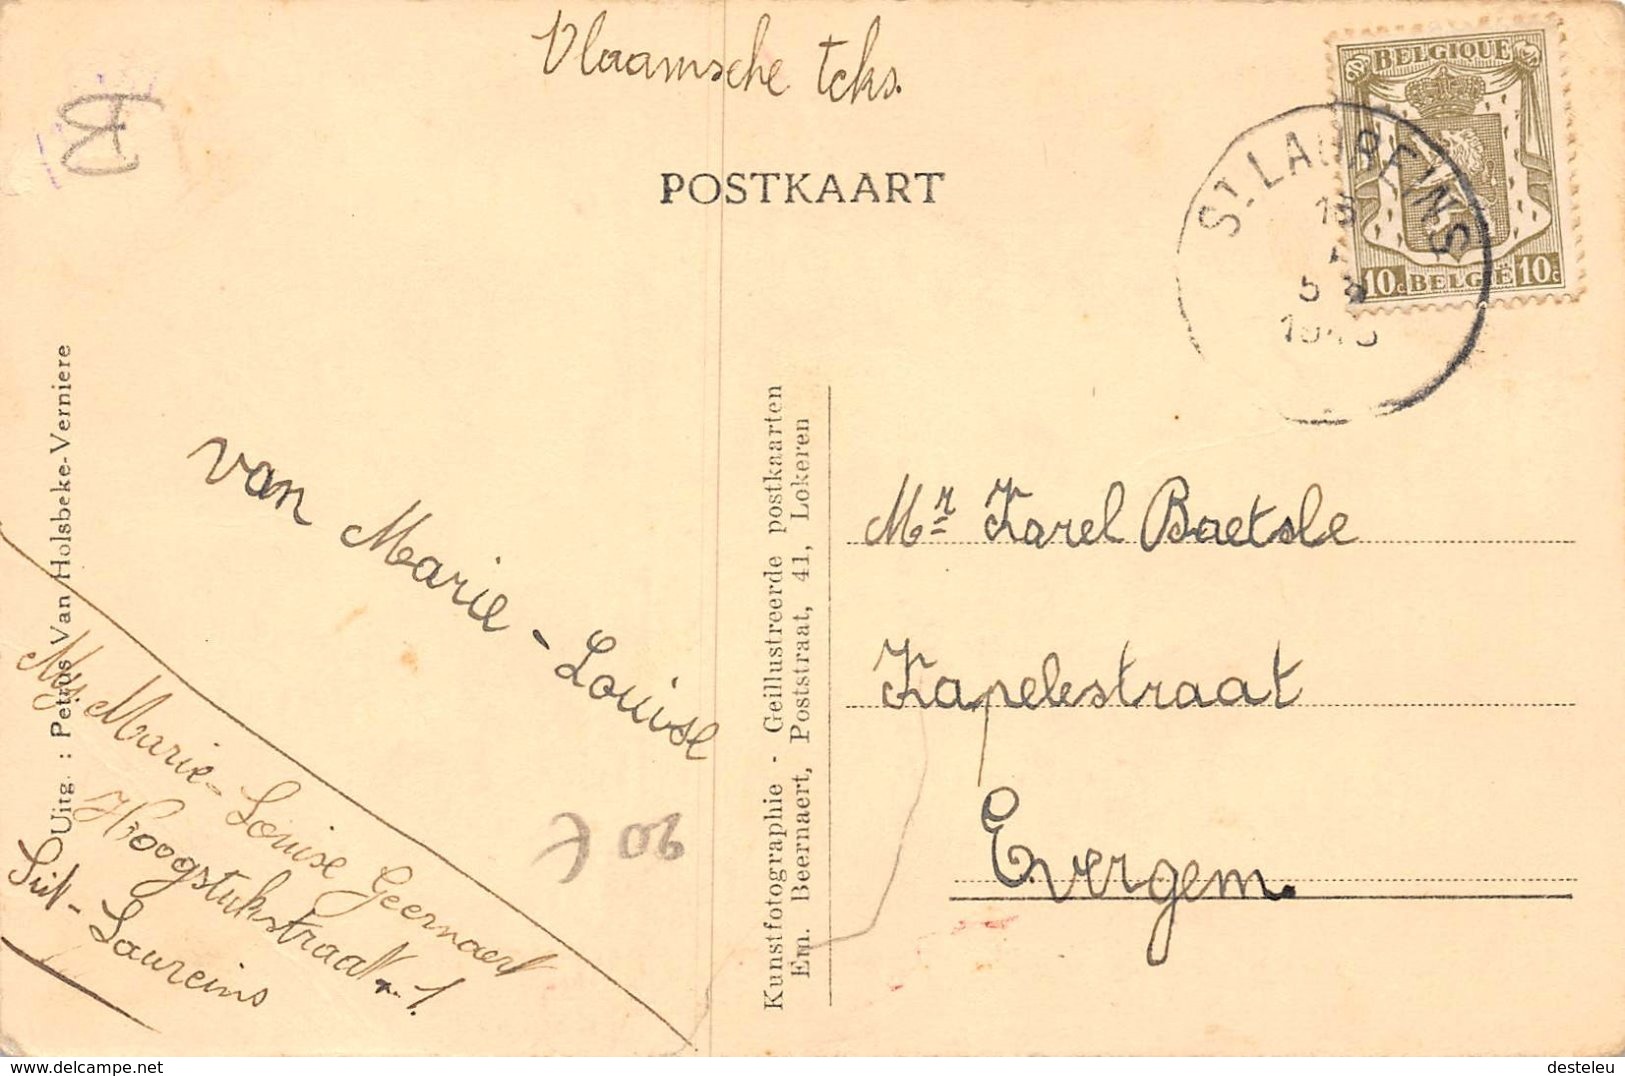 Vlaamsche tcks.
POSTKAART
BELGIQUE
10c BELGIË 10c
ST LAUREINS
15
5
Uitg. : Petrus Van Holsbeke-Verniere
van Marie-Louise
Marie-Louise Geernaert
Hoogstukstraat n. 1.
Sint-Laureins
Kunstfotografie - Geillustreerde postkaarten
Em. Beernaert, Poststraat, 41, Lokeren
Mr Karel Baetsle
Kapelestraat
Evergem.
www.delcampe.net
desteleu